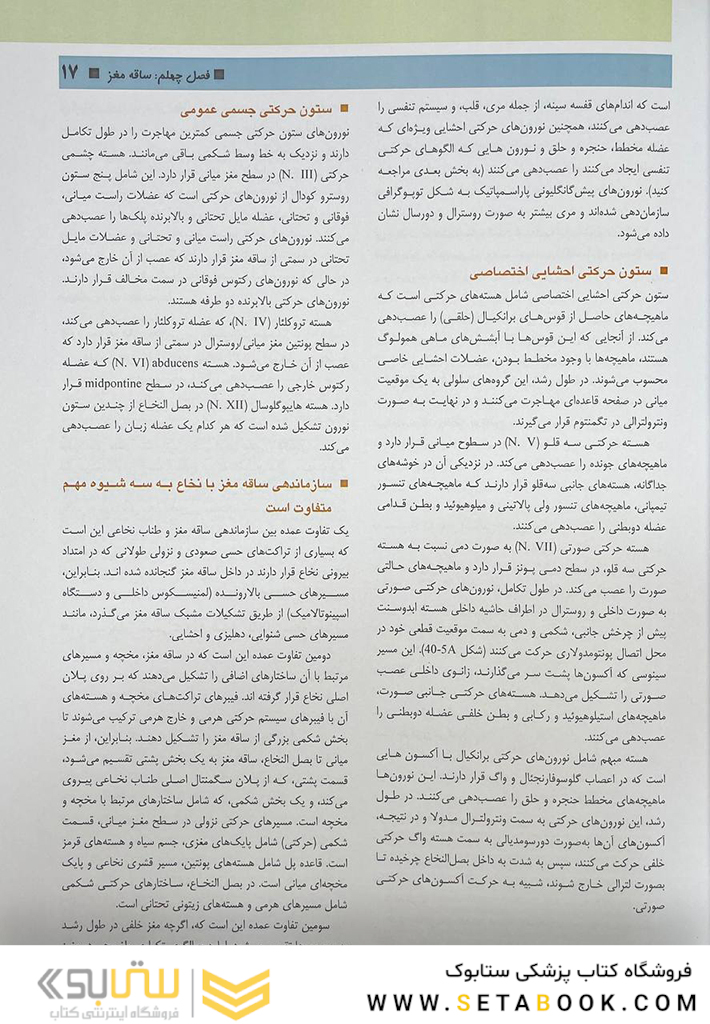 ■ فصل چهلم: ساقه مغز ■ ۱۷
است که اندام‌های قفسه سینه، از جمله مری، قلب، و سیستم تنفسی را
عصب‌دهی می‌کنند، همچنین نورون‌های حرکتی احشایی ویژه‌ای که
عضله مخطط، حنجره و حلق و نورون هایی که الگوهای حرکتی
تنفسی ایجاد می‌کنند را عصب‌دهی می‌کنند (به بخش بعدی مراجعه
کنید). نورون‌های پیش‌گانگلیونی پاراسمپاتیک به شکل توپوگرافی
سازمان‌دهی شده‌اند و مری بیشتر به صورت روسترال و دورسال نشان
داده می‌شود.
■ ستون حرکتی احشایی اختصاصی
ستون حرکتی احشایی اختصاصی شامل هسته‌های حرکتی است که
ماهیچه‌های حاصل از قوس‌های برانکیال (حلقی) را عصب‌دهی
می‌کند. از آنجایی که این قوس‌ها با آبشش‌های ماهی همولوگ
هستند، ماهیچه‌ها با وجود مخطط بودن، عضلات احشایی خاصی
محسوب می‌شوند. در طول رشد، این گروه‌های سلولی به یک موقعیت
میانی در صفحه قاعده‌ای مهاجرت می‌کنند و در نهایت به صورت
ونترولترالی در تگمنتوم قرار می‌گیرند.
هسته حرکتی سه قلو (N. V) در سطوح میانی قرار دارد و
ماهیچه‌های جونده را عصب‌دهی می‌کند. در نزدیکی آن در خوشه‌های
جداگانه، هسته‌های جانبی سه‌قلو قرار دارند که ماهیچه‌های تنسور
تیمپانی، ماهیچه‌های تنسور ولی پالاتینی و میلوهیوئید و بطن قدامی
عضله دوبطنی را عصب‌دهی می‌کنند.
هسته حرکتی صورتی (N. VII) به صورت دمی نسبت به هسته
حرکتی سه قلو، در سطح دمی پونز قرار دارد و ماهیچه‌های حالتی
صورت را عصب می‌کند. در طول تکامل، نورون‌های حرکتی صورتی
به صورت داخلی و روسترال در اطراف حاشیه داخلی هسته ابدوسنت
پیش از چرخش جانبی، شکمی و دمی به سمت موقعیت قطعی خود در
محل اتصال پونتومدولاری حرکت می‌کنند (شکل 40-5A). این مسیر
سینوسی که آکسون‌ها پشت سر می‌گذارند، زانوی داخلی عصب
صورتی را تشکیل می‌دهد. هسته‌های حرکتی جانبی صورت،
ماهیچه‌های استیلوهیوئید و رکابی و بطن خلفی عضله دوبطنی را
عصب‌دهی می‌کنند.
هسته مبهم شامل نورون‌های حرکتی برانکیال با آکسون هایی
است که در اعصاب گلوسوفارنجئال و واگ قرار دارند. این نورون‌ها
ماهیچه‌های مخطط حنجره و حلق را عصب‌دهی می‌کنند. در طول
رشد، این نورون‌های حرکتی به سمت ونترولترال مدولا و در نتیجه،
آکسون‌های آن‌ها به‌صورت دورسومدیالی به سمت هسته واگ حرکتی
خلفی حرکت می‌کنند، سپس به شدت به داخل بصل‌النخاع چرخیده تا
بصورت لترالی خارج شوند، شبیه به حرکت آکسون‌های حرکتی
صورتی.
■ ستون حرکتی جسمی عمومی
نورون‌های ستون حرکتی جسمی کمترین مهاجرت را در طول تکامل
دارند و نزدیک به خط وسط شکمی باقی می‌مانند. هسته چشمی
حرکتی (N. III) در سطح مغز میانی قرار دارد. این شامل پنج ستون
روسترو کودال از نورون‌های حرکتی است که عضلات راست میانی،
فوقانی و تحتانی، عضله مایل تحتانی و بالابرنده پلک‌ها را عصب‌دهی
می‌کنند. نورون‌های حرکتی راست میانی و تحتانی و عضلات مایل
تحتانی در سمتی از ساقه مغز قرار دارند که عصب از آن خارج می‌شود،
در حالی که نورون‌های رکتوس فوقانی در سمت مخالف قرار دارند.
نورون‌های حرکتی بالابرنده دو طرفه هستند.
هسته تروکلئار (N. IV)، که عضله تروکلئار را عصب‌دهی می‌کند،
در سطح پونتین مغز میانی/روسترال در سمتی از ساقه مغز قرار دارد که
عصب از آن خارج می‌شود. هسته abducens (N. VI) که عضله
رکتوس خارجی را عصب‌دهی می‌کند، در سطح midpontine قرار
دارد. هسته هایپوگلوسال (N. XII) در بصل النخاع از چندین ستون
نورون تشکیل شده است که هر کدام یک عضله زبان را عصب‌دهی
می‌کند.
■ سازماندهی ساقه مغز با نخاع به سه شیوه مهم
متفاوت است
یک تفاوت عمده بین سازماندهی ساقه مغز و طناب نخاعی این است
که بسیاری از تراکت‌های حسی صعودی و نزولی طولانی که در امتداد
بیرونی نخاع قرار دارند در داخل ساقه مغز گنجانده شده اند. بنابراین،
مسیرهای حسی بالارونده (لمنیسکوس داخلی و دستگاه
اسپینوتالامیک) از طریق تشکیلات مشبک ساقه مغز می‌گذرد، مانند
مسیرهای حسی شنوایی، دهلیزی و احشایی.
دومین تفاوت عمده این است که در ساقه مغز، مخچه و مسیرهای
مرتبط با آن ساختارهای اضافی را تشکیل می‌دهند که بر روی پلان
اصلی نخاع قرار گرفته اند. فیبرهای تراکت‌های مخچه و هسته‌های
آن با فیبرهای سیستم حرکتی هرمی و خارج هرمی ترکیب می‌شوند تا
بخش شکمی بزرگی از ساقه مغز را تشکیل دهند. بنابراین، از مغز
میانی تا بصل النخاع، ساقه مغز به یک بخش پشتی تقسیم می‌شود،
قسمت پشتی، که از پلان سگمنتال اصلی طناب نخاعی پیروی
می‌کند، و یک بخش شکمی، که شامل ساختارهای مرتبط با مخچه و
مخچه است. مسیرهای حرکتی نزولی در سطح مغز میانی، قسمت
شکمی (حرکتی) شامل پایک‌های مغزی، جسم سیاه و هسته‌های قرمز
است. قاعده پل شامل هسته‌های پونتین، مسیر قشری نخاعی و پایک
مخچه‌ای میانی است. در بصل النخاع، ساختارهای حرکتی شکمی
شامل مسیرهای هرمی و هسته‌های زیتونی تحتانی است.
سومین تفاوت عمده این است که، اگرچه مغز خلفی در طول رشد
ستابوک
فروشگاه اینترنتی کتاب
فروشگاه کتاب پزشکی ستابوک
WWW.SETABOOK.COM